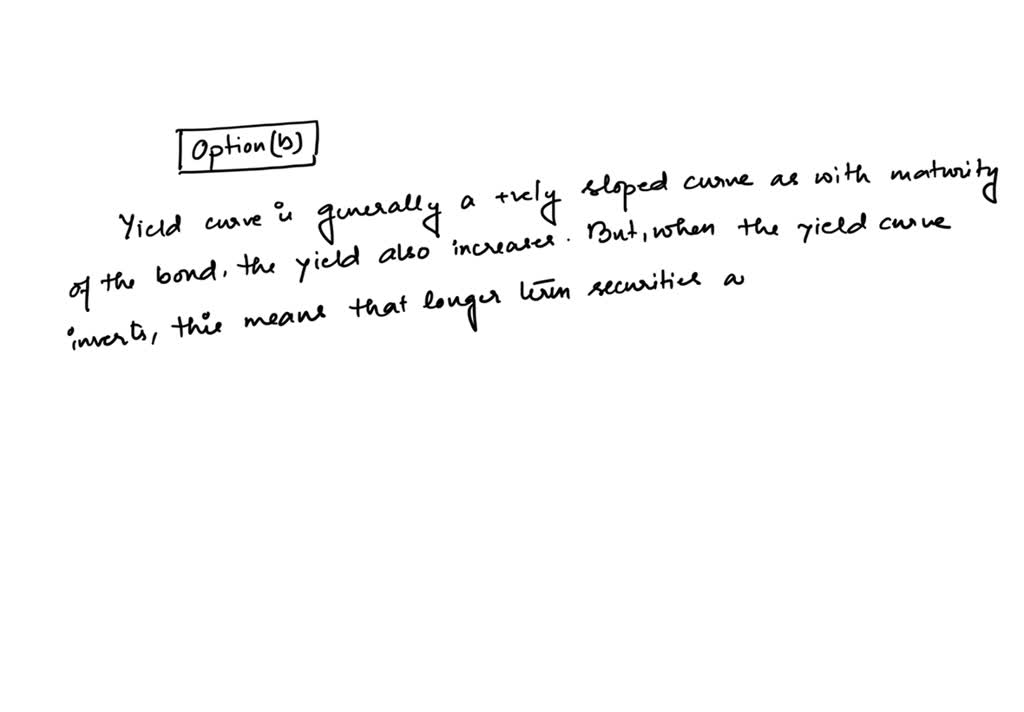 Option (b)
Yield curve is generally a +vely sloped curve as with maturity
of the bond, the yield also increases. But, when the yield curve
inverts, this means that longer term securities a